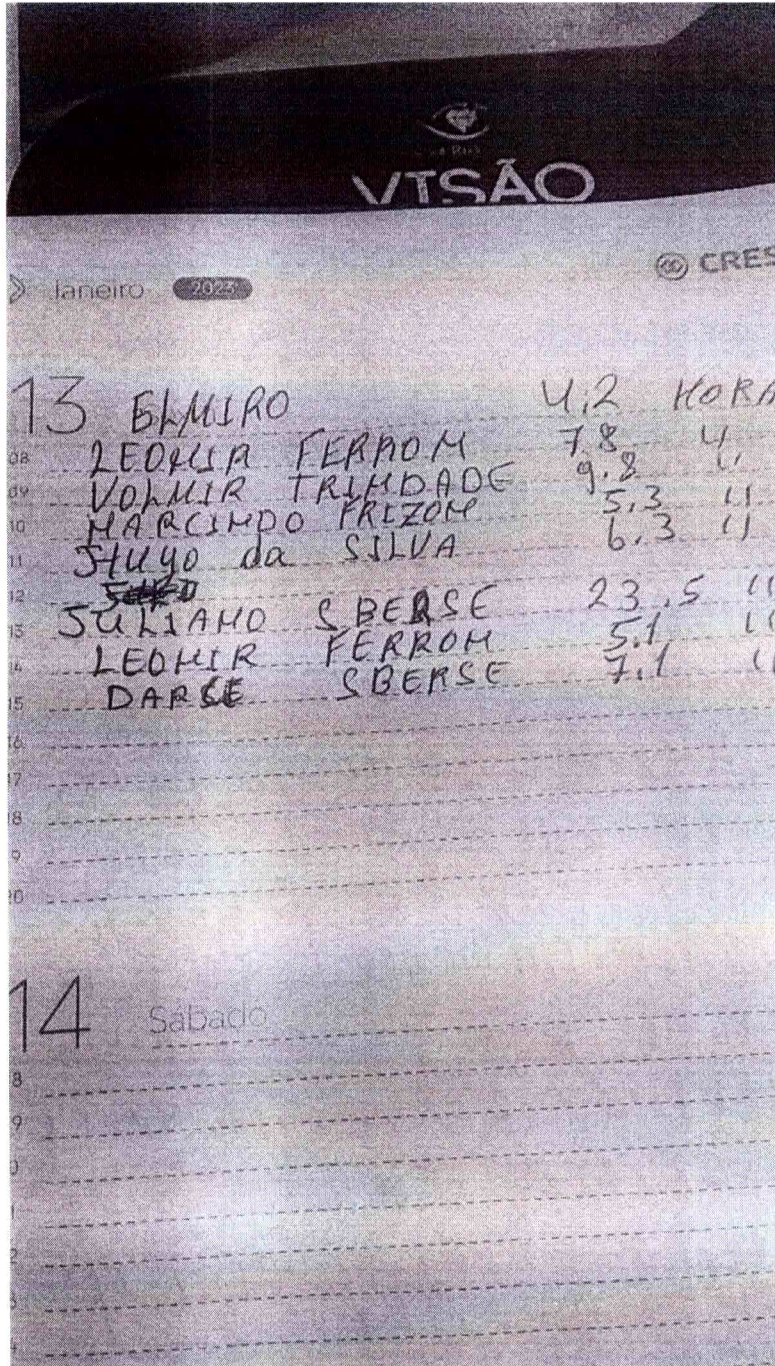 VISÃO
Janeiro 2023
CRES
13 ELMIRO 4,2 HORA
08 LEOMIR FERROM 7.8 "
09 VOLMIR TRINDADE 9.8 "
10 MARCINDO FRIZOM 5.3 "
11 da SILVA 6.3 "
12
13 JULIANO SBERSE 23,5 "
14 LEOMIR FERROM 5.1 "
15 DARSE SBERSE 7.1 "
16
17
18
19
20
14 Sábado
8
9
0
1
2
3